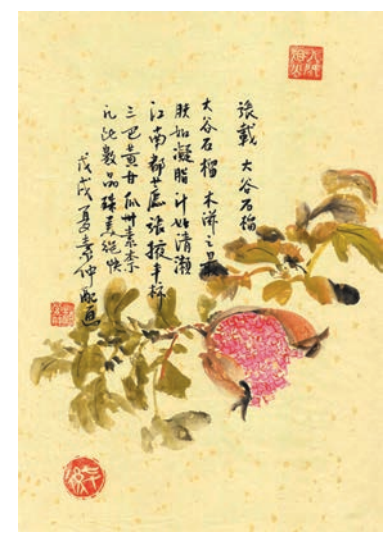 張載 大谷石榴
大谷石榴 木滸之最
肤如凝脂 汁如清瀨
江南都蔗 張掖丰柿
三巴黄甘 瓜州素柰
凡此數品 殊美絕快
戊戌夏 仲配画